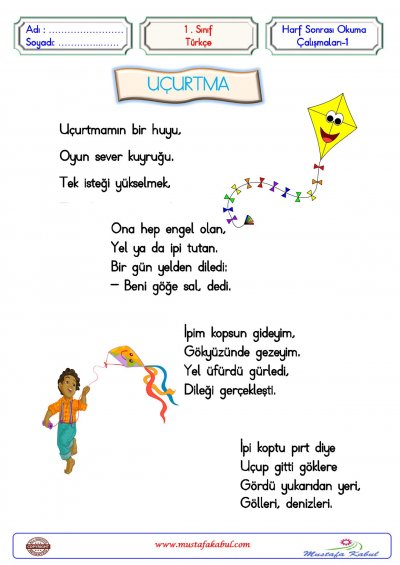 Adı : ........................
Soyadı: ....................
1. Sınıf
Türkçe
Harf Sonrası Okuma
Çalışmaları-1
UÇURTMA
Uçurtmamın bir huyu,
Oyun sever kuyruğu.
Tek isteği yükselmek,
Ona hep engel olan,
Yel ya da ipi tutan.
Bir gün yelden diledi:
– Beni göğe sal, dedi.
İpim kopsun gideyim,
Gökyüzünde gezeyim.
Yel üfürdü gürledi,
Dileği gerçekleşti.
İpi koptu pırt diye
Uçup gitti göklere
Gördü yukarıdan yeri,
Gölleri, denizleri.
COPYRIGHT
www.mustafakabul.com
Mustafa Kabul